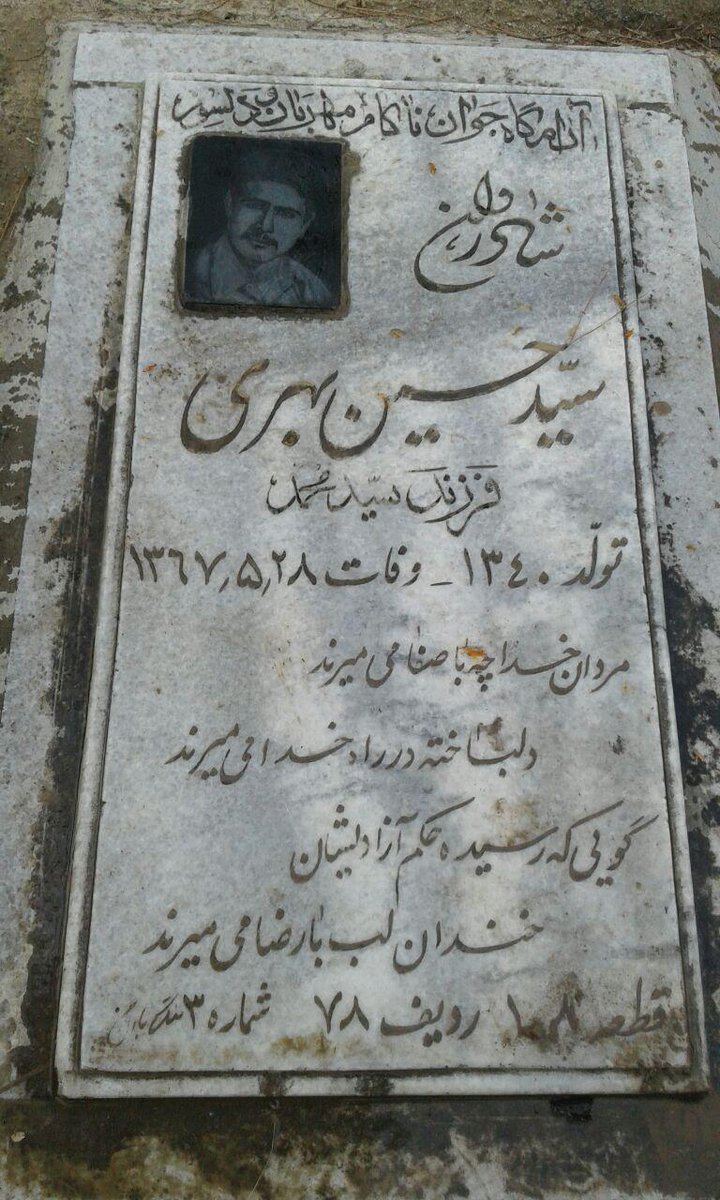 آرامگاه جوان ناکام مهربان و دلسوز
شادروان
سیّد حسین بهری
فرزند سیّد محمد
تولّد ۱۳٤۰ - وفات ۱۳٦۷٫۵٫۲۸
مردان خدا چه با صفا می میرند
دلباخته در راه خدا می میرند
گویی که رسیده حکم آزادیشان
خندان لب با رضا می میرند
قطعه ۱۰۸ ردیف ۷۸ شماره ۳